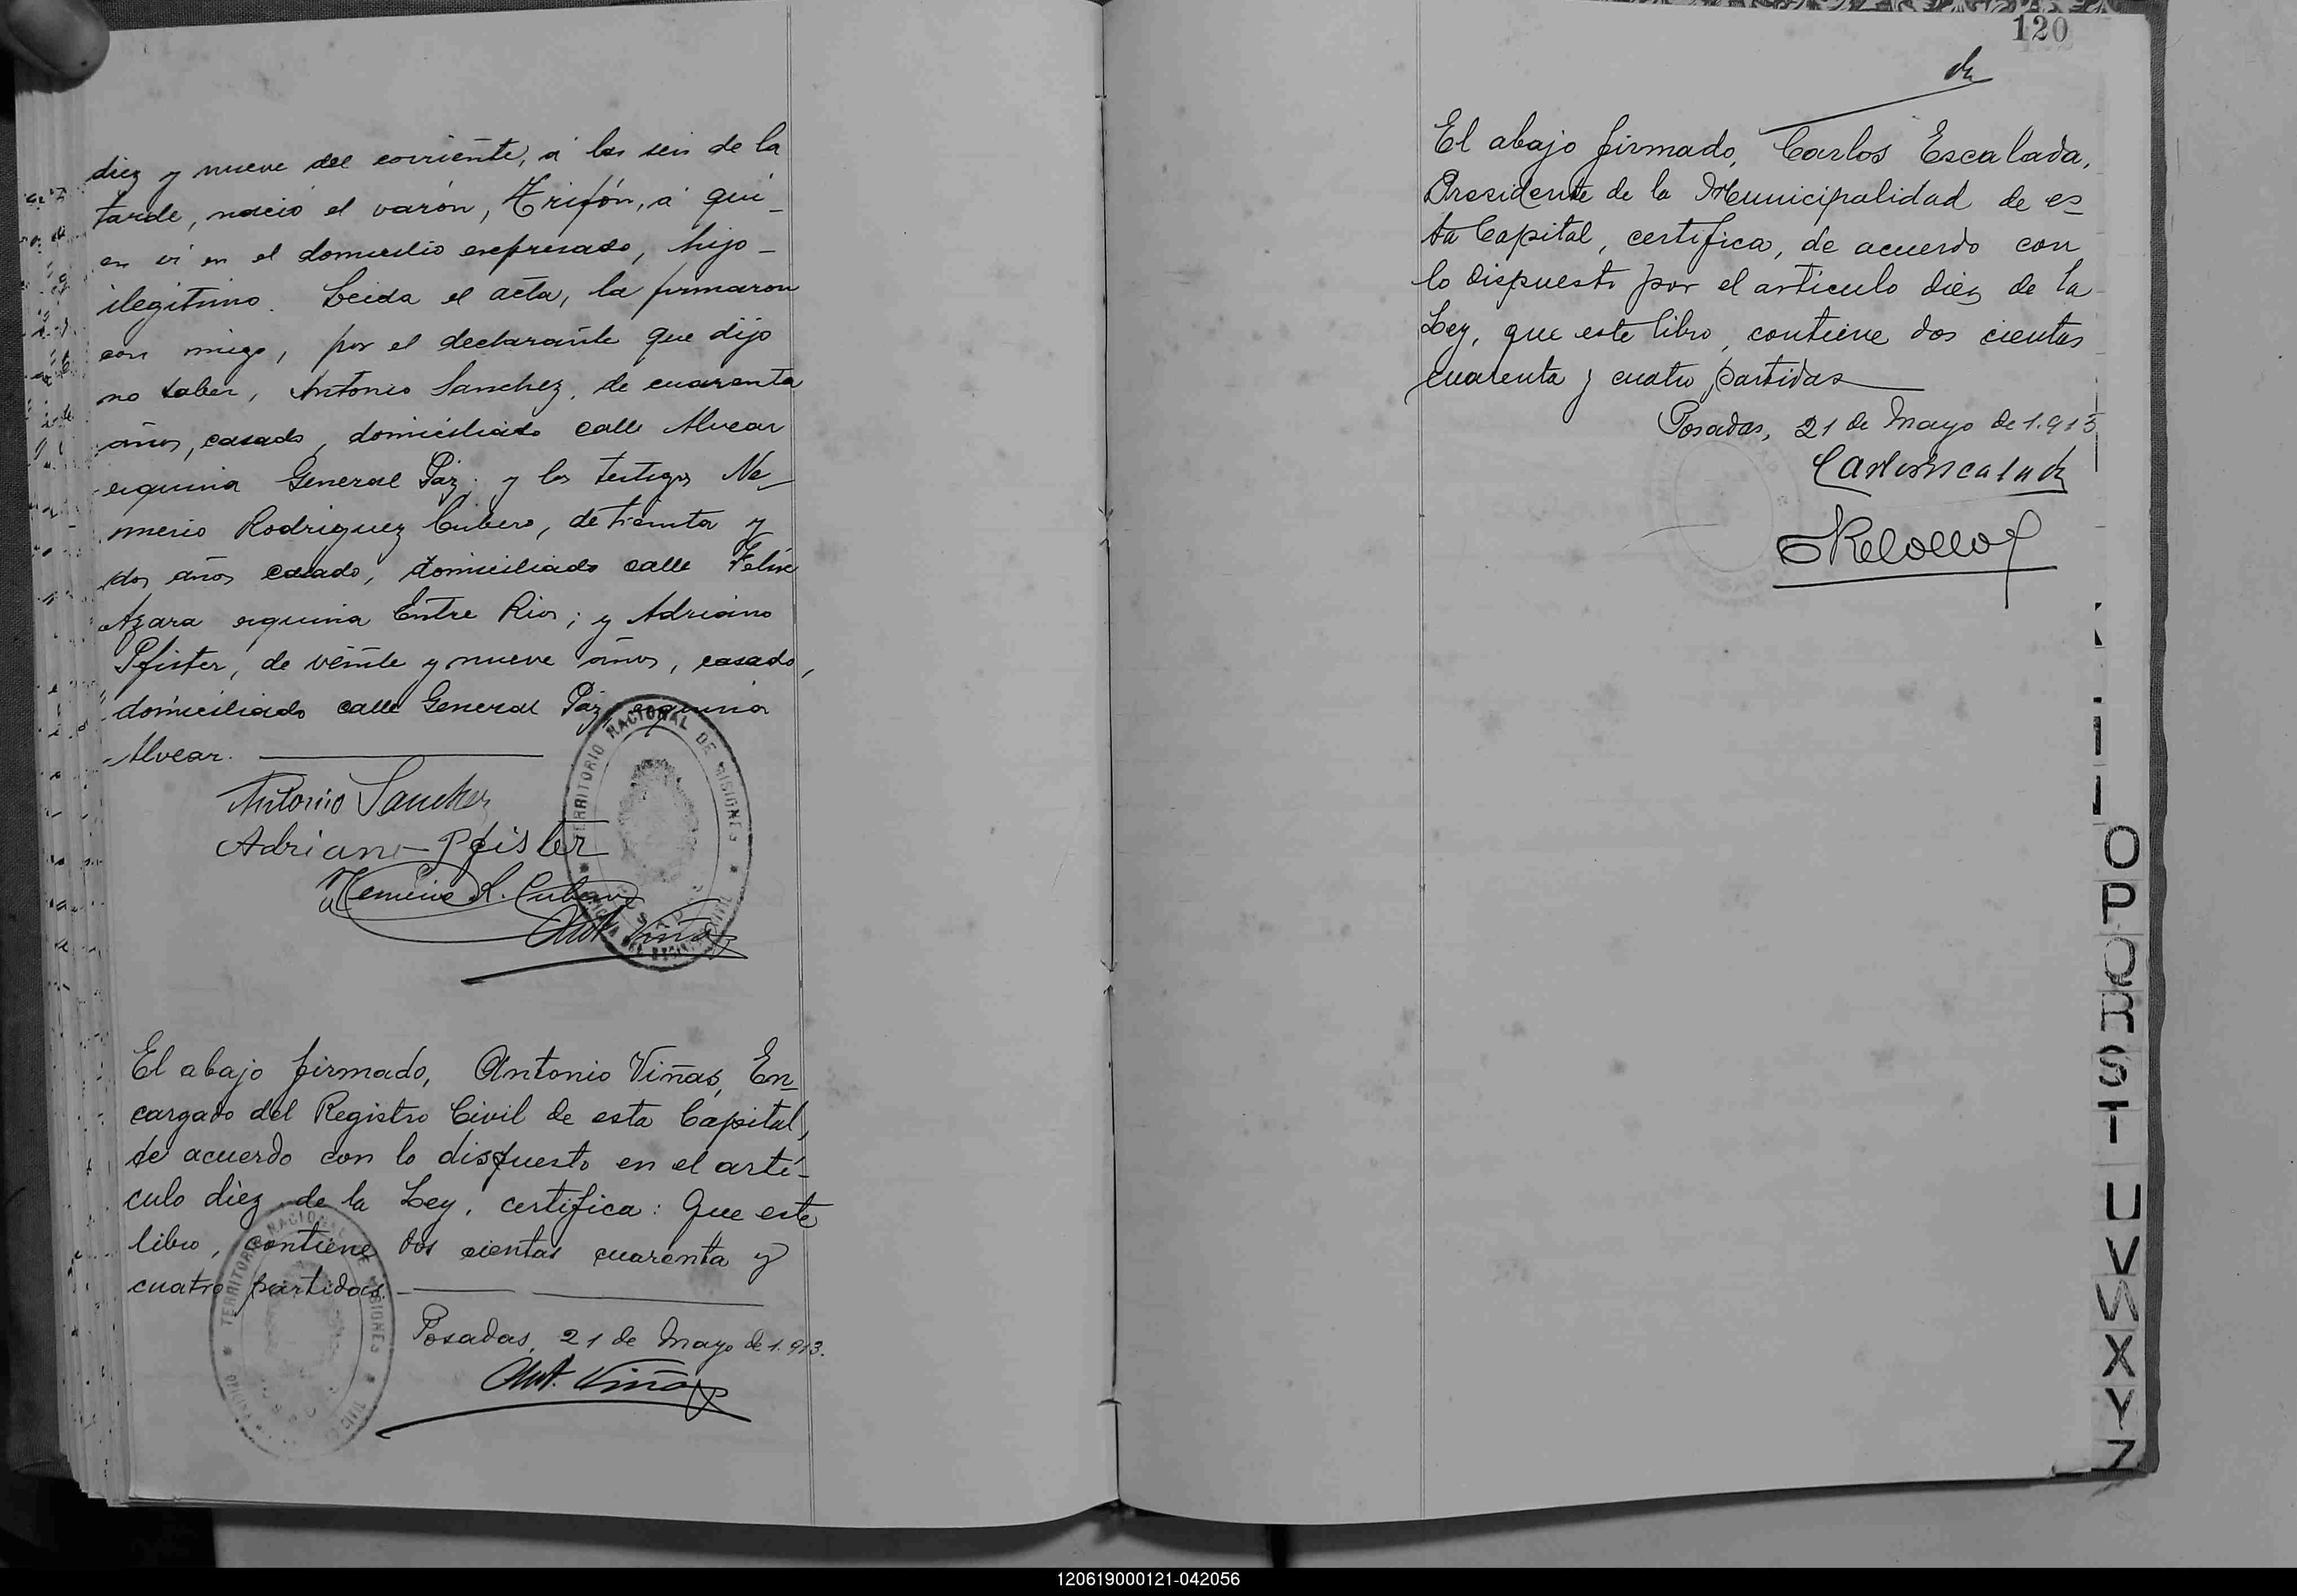 diez y nueve del corriente, á las seis de la
tarde, nació el varón, Trifón, á qui-
en vi en el domicilio expresado, hijo-
ilegitimo. Leida el acta, la firmaron
con migo, por el declarante que dijo
no saber, Antonio Sanchez, de cuarenta
años, casado, domiciliado calle Alvear
esquina General Paz; y los testigos Ne-
mesio Rodriguez Cubero, de treinta y
dos años casado, domiciliado calle Felix
Azara esquina Entre Rios; y Adriano
Pfister, de veinte y nueve años, casado,
domiciliado calle General Paz, esquina
Alvear.
TERRITORIO NACIONAL DE MISIONES
Antonio Sanchez
Adriano Pfister
Nemesio R. Cubero
Ant. Viñas
El abajo firmado, Antonio Viñas, En-
cargado del Registro Civil de esta Capital,
de acuerdo con lo dispuesto en el artí-
culo diez de la Ley, certifica: Que este
libro, contiene dos cientas cuarenta y
cuatro partidas.
TERRITORIO NACIONAL DE MISIONES
Posadas, 21 de Mayo de 1.913.
Ant. Viñas
120
El abajo firmado, Carlos Escalada,
Presidente de la Municipalidad de es-
ta Capital, certifica, de acuerdo con
lo dispuesto por el articulo diez de la
Ley, que este libro, contiene dos cientas
cuarenta y cuatro partidas
Posadas, 21 de Mayo de 1.913
Carlos Escalada
O
P
Q
R
S
T
U
V
W
X
Y
Z
120619000121-042056